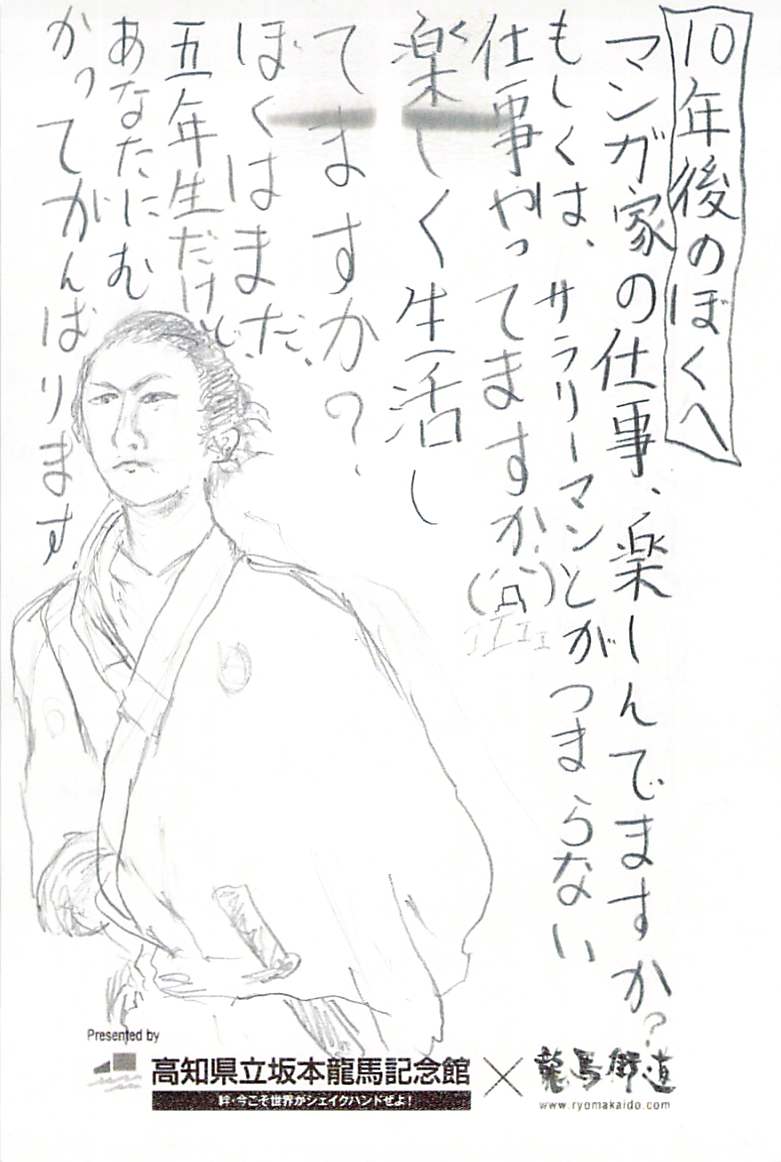 10年後のぼくへ
マンガ家の仕事、楽しんでますか?
もしくは、サラリーマンとかつまらない
仕事やってますか
楽しく生活し
てますか?
ぼくはまだ、
五年生だけど、
あなたにむ
かってがんばります。
Presented by
高知県立坂本龍馬記念館
絆・今こそ世界がシェイクハンドぜよ!
×
龍馬街道
www.ryomakaido.com